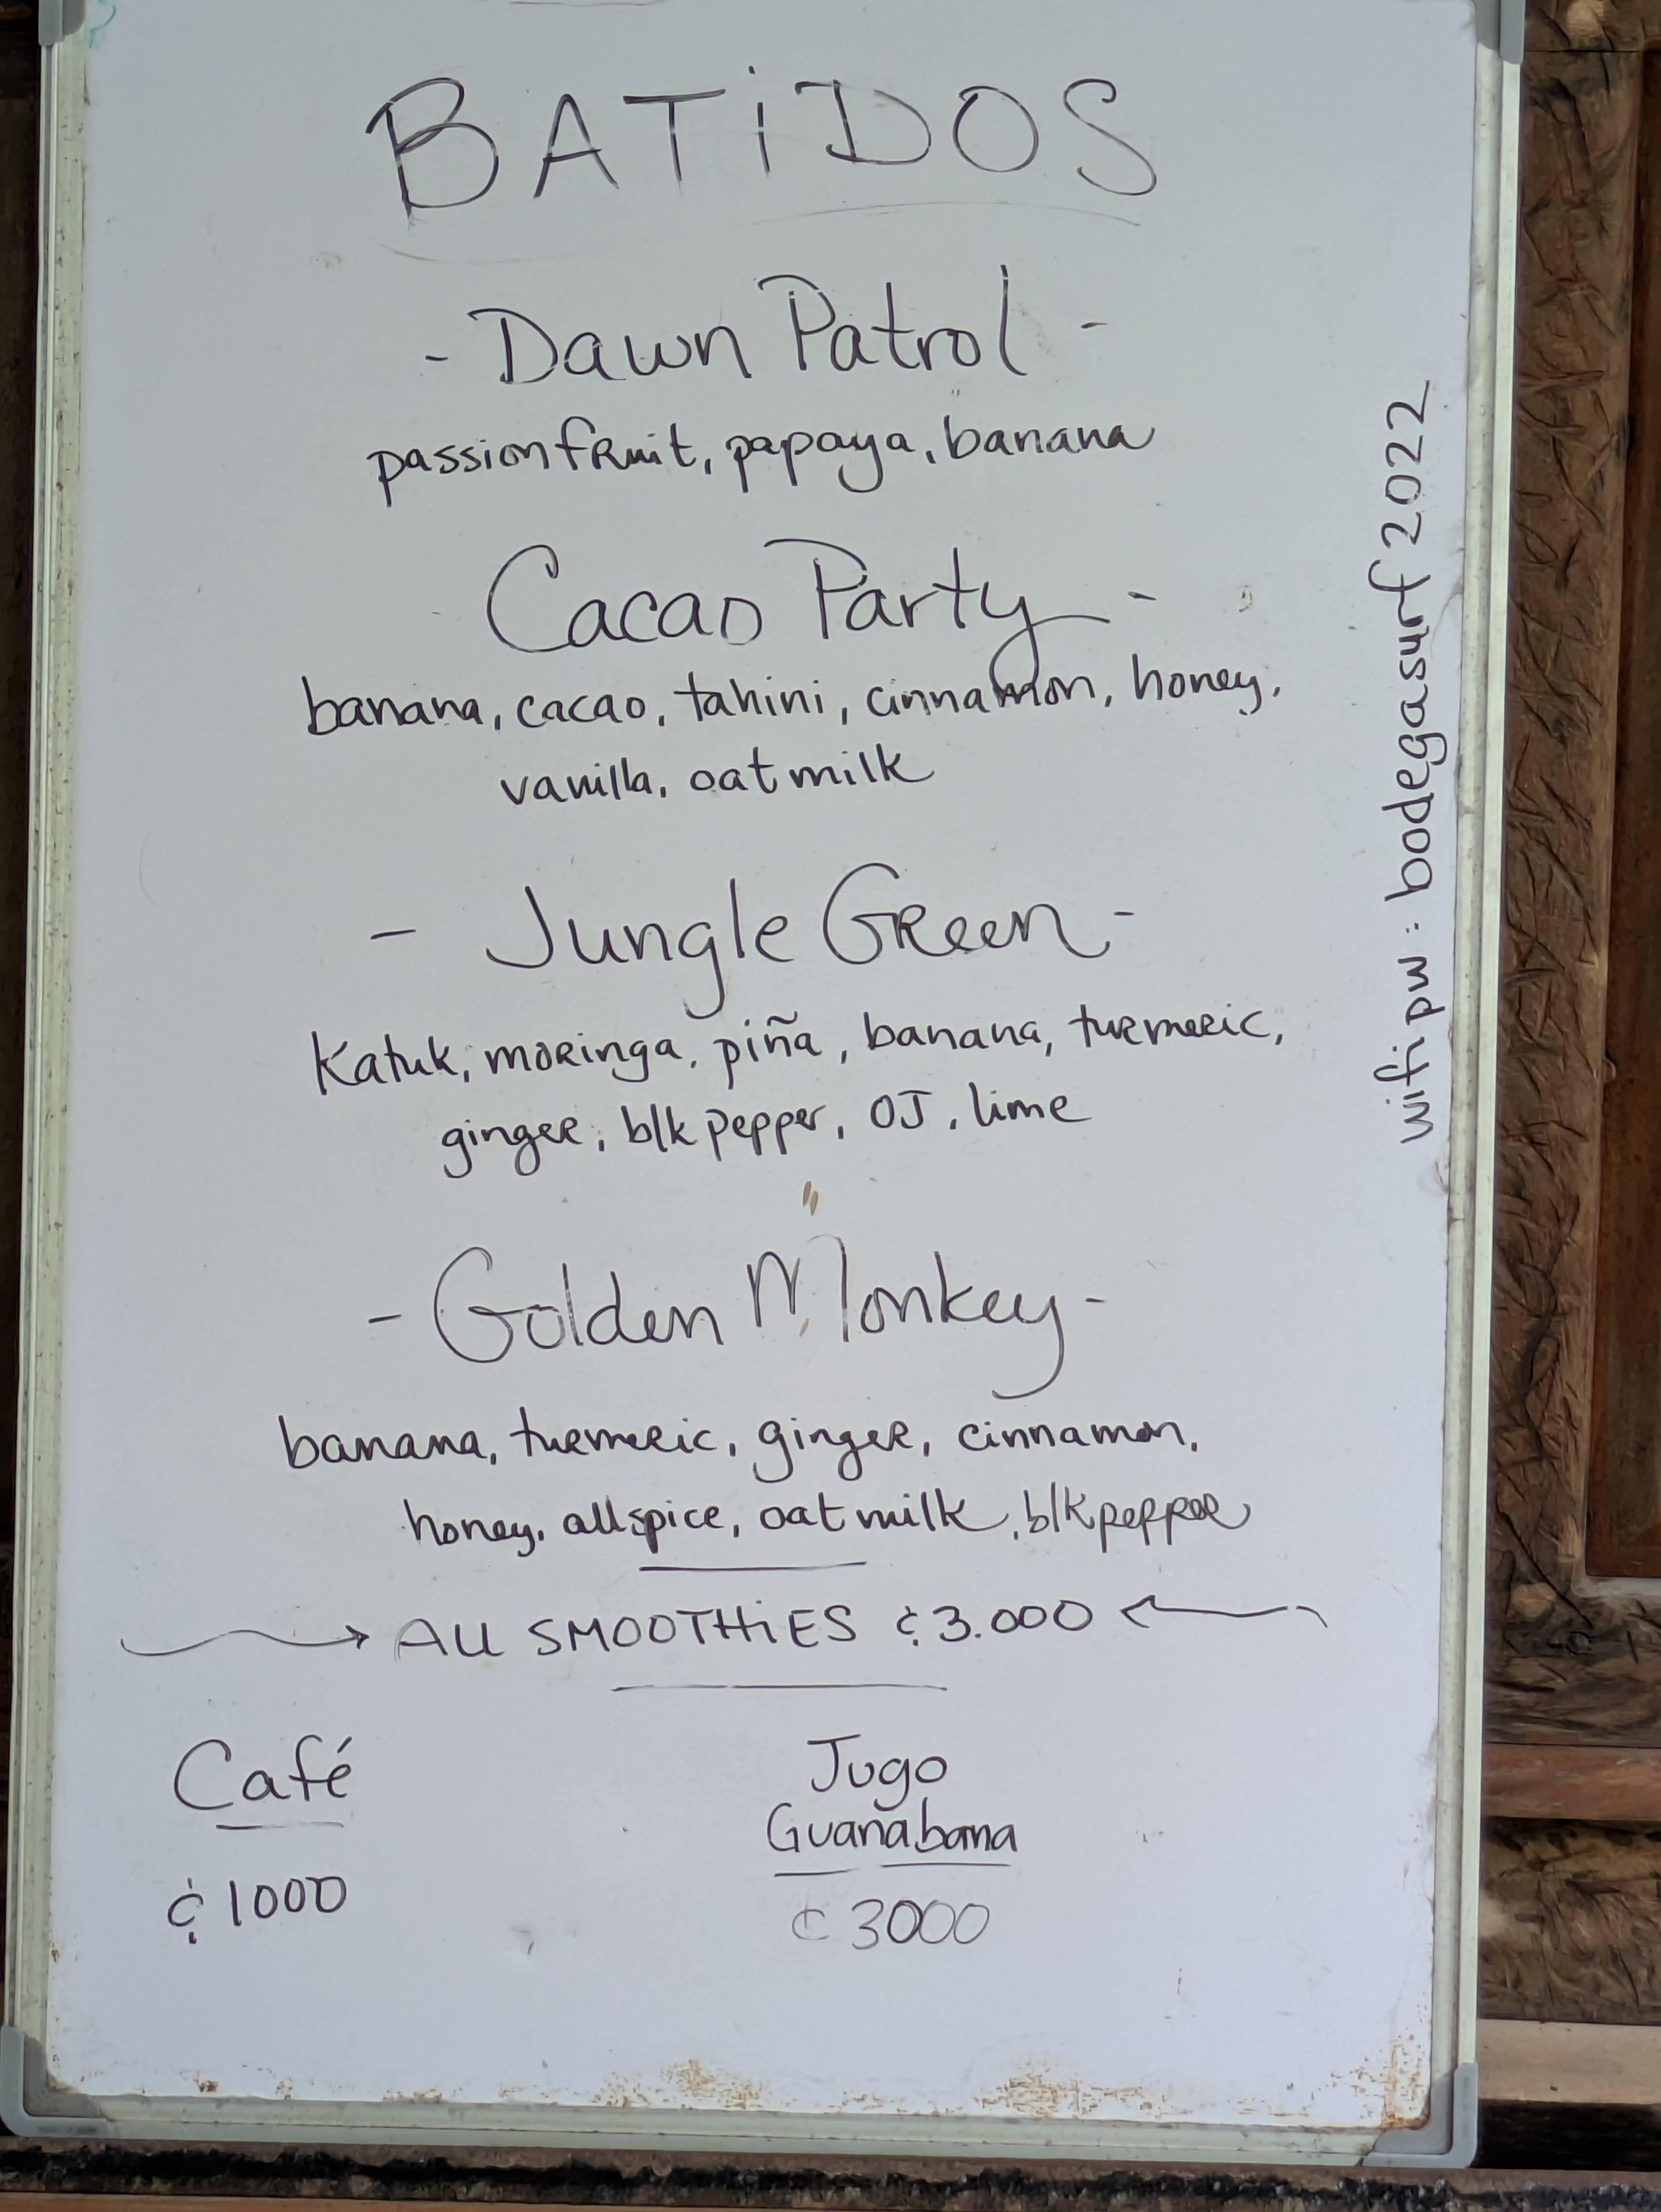 BATiDOS
- Dawn Patrol -
passionfruit, papaya, banana
Cacao Party -
banana, cacao, tahini, cinnamon, honey,
vanilla, oat milk
- Jungle Green -
Katuk, moringa, piña, banana, turmeric,
ginger, blk pepper, OJ, lime
- Golden Monkey -
banana, turmeric, ginger, cinnamon,
honey, allspice, oat milk, blk pepper
ALL SMOOTHiES ¢3.000
Café
¢1000
Jugo
Guanabana
¢3000
wifi pw: bodegasurf2022